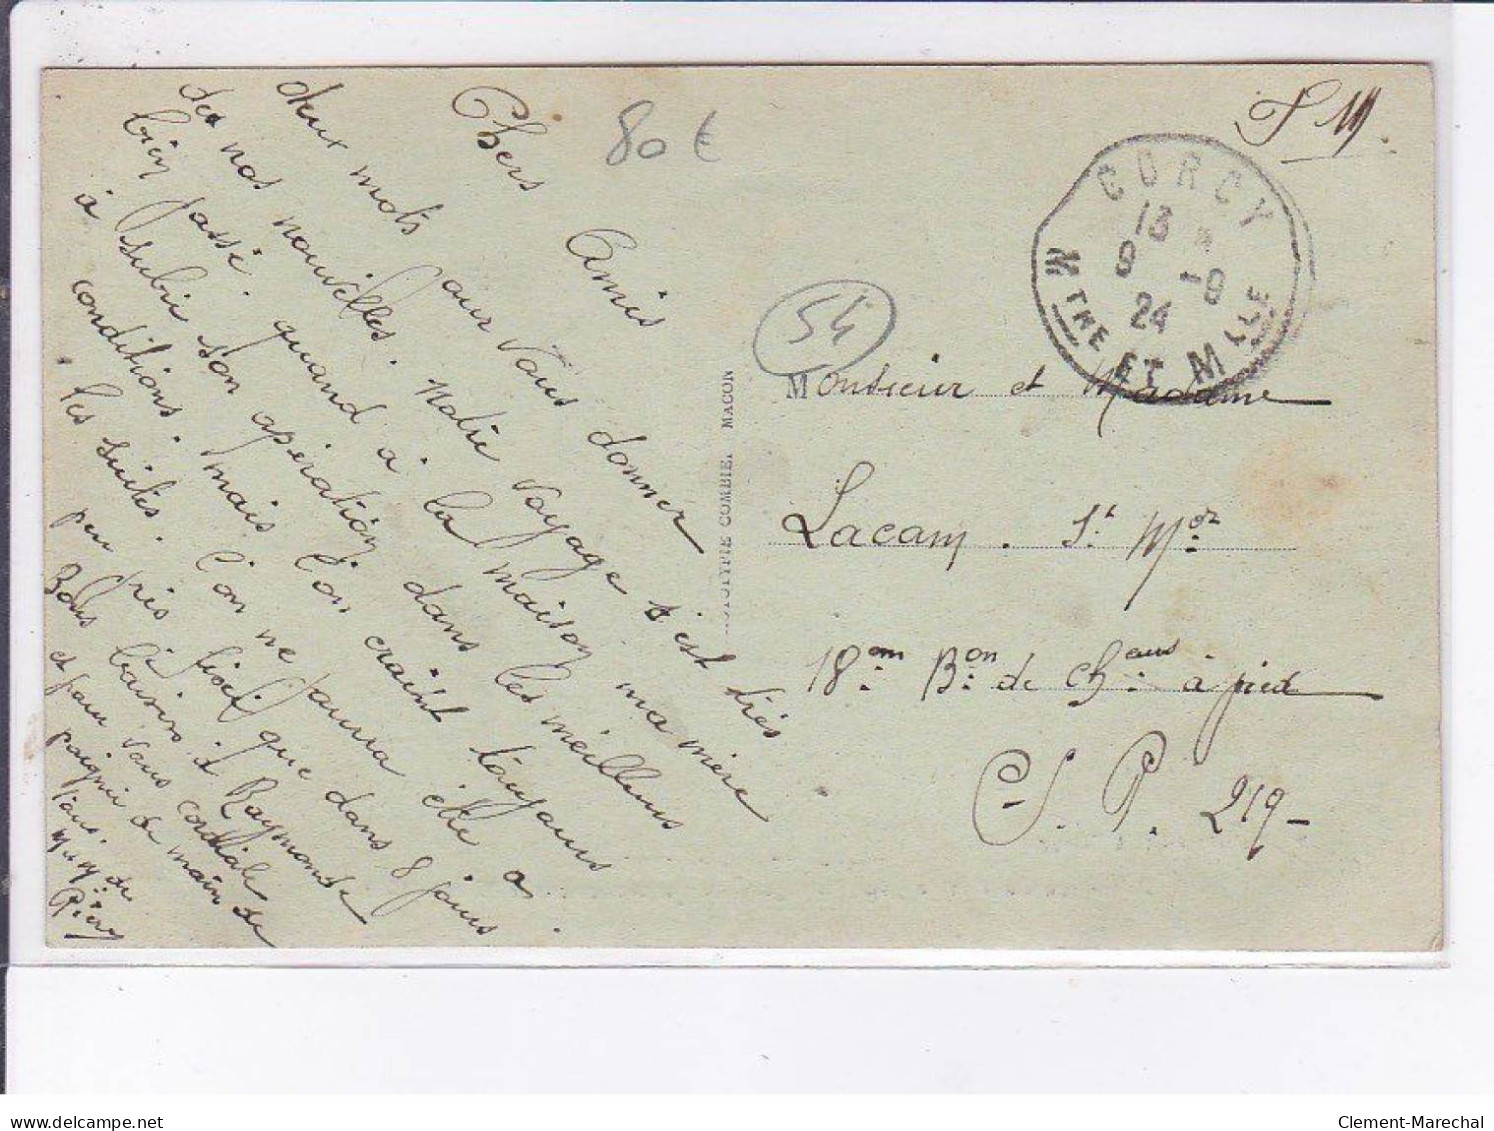 Chers Amis
deux mots pour vous donner
de nos nouvelles. Notre voyage s'est très
bien passé. quand à la maison ma mère
à subir son opération dans les meilleurs
conditions. mais l'on craint toujours
les suites. l'on ne pourra être a
peu près fixé que dans 8 jours.
Bons baisers à Raymonde
et pour vous cordiale
poignée de main de
tous.
80 €
F M.
CURCY
13
9 -9
24
MTHE ET MLLE
54
Monsieur et Madame
Lacam. St Mor
18em Bon de Cheurs à pied
S. P. 219-
PHOTOTYPIE COMBIER MACON
www.delcampe.net
Clement-Marechal